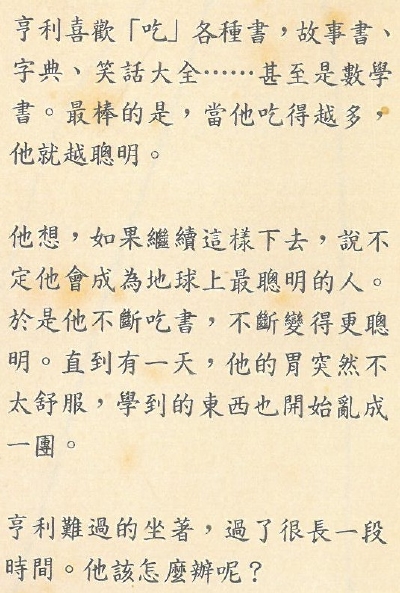 亨利喜歡「吃」各種書，故事書、
字典、笑話大全⋯⋯甚至是數學
書。最棒的是，當他吃得越多，
他就越聰明。
他想，如果繼續這樣下去，說不
定他會成為地球上最聰明的人。
於是他不斷吃書，不斷變得更聰
明。直到有一天，他的胃突然不
太舒服，學到的東西也開始亂成
一團。
亨利難過的坐著，過了很長一段
時間。他該怎麼辦呢？